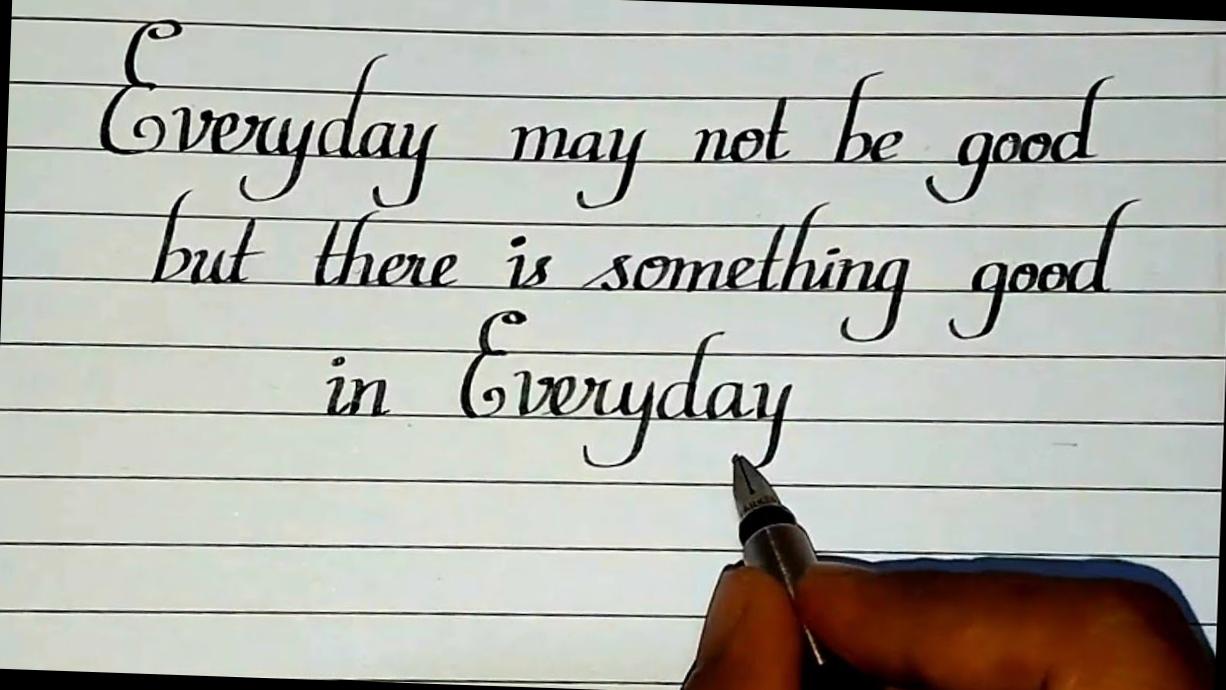 Everyday may not be good
but there is something good
in Everyday